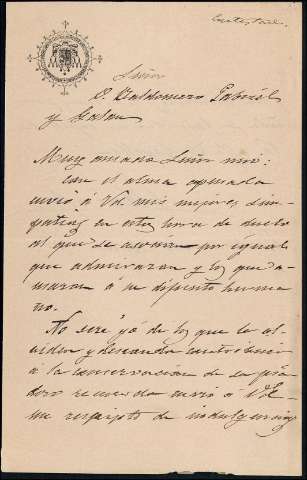 Contestada.
Señor
D. Baldomero Gabriel
y Galan
Muy amado Señor mio:
Con el alma apenada
envio á Vd. mis mejores sim-
patias en esta hora de duelo
al que se asocian por igual
que admiraron y los que a-
maron á su difunto herma
no.
No seré yó de los que le ol-
viden y deseando contribuir
á la conservación de su
recuerdo envio á Vd.
un rescripto de indulgencias